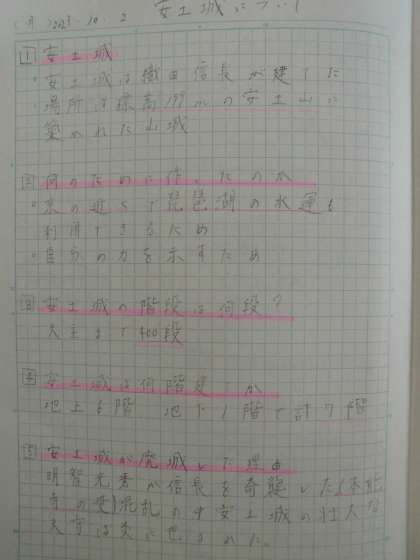 (月) 2023・10・2 安土城について
1 安土城
・安土城は織田信長が建てた
・場所は標高199mの安土山に
築かれた山城
2 何のために作ったのか
・京の近くで琵琶湖の水運も
利用できるため
・自分の力を示すため
3 安土城の階段は何段?
天主まで400段
4 安土城は何階建てか
地上6階 地下1階で計7階
5 安土城が廃城した理由
明智光秀が信長を奇襲した(本能
寺の変)混乱の中安土城の壮大な
天守は炎に包まれた。